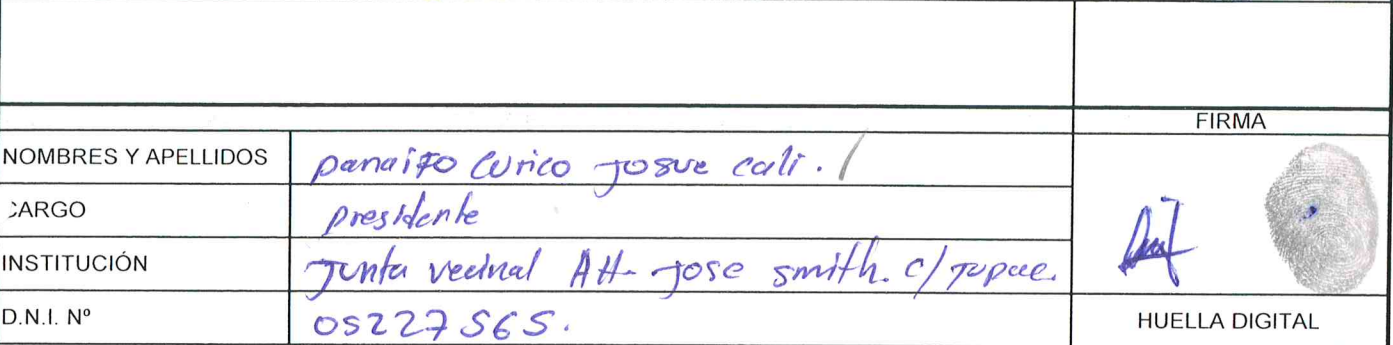 FIRMA
NOMBRES Y APELLIDOS panaifo Curico Josue cali.
CARGO presidente
INSTITUCIÓN Junta vecinal AH- Jose smith. c/
D.N.I. Nº 05227565.
HUELLA DIGITAL